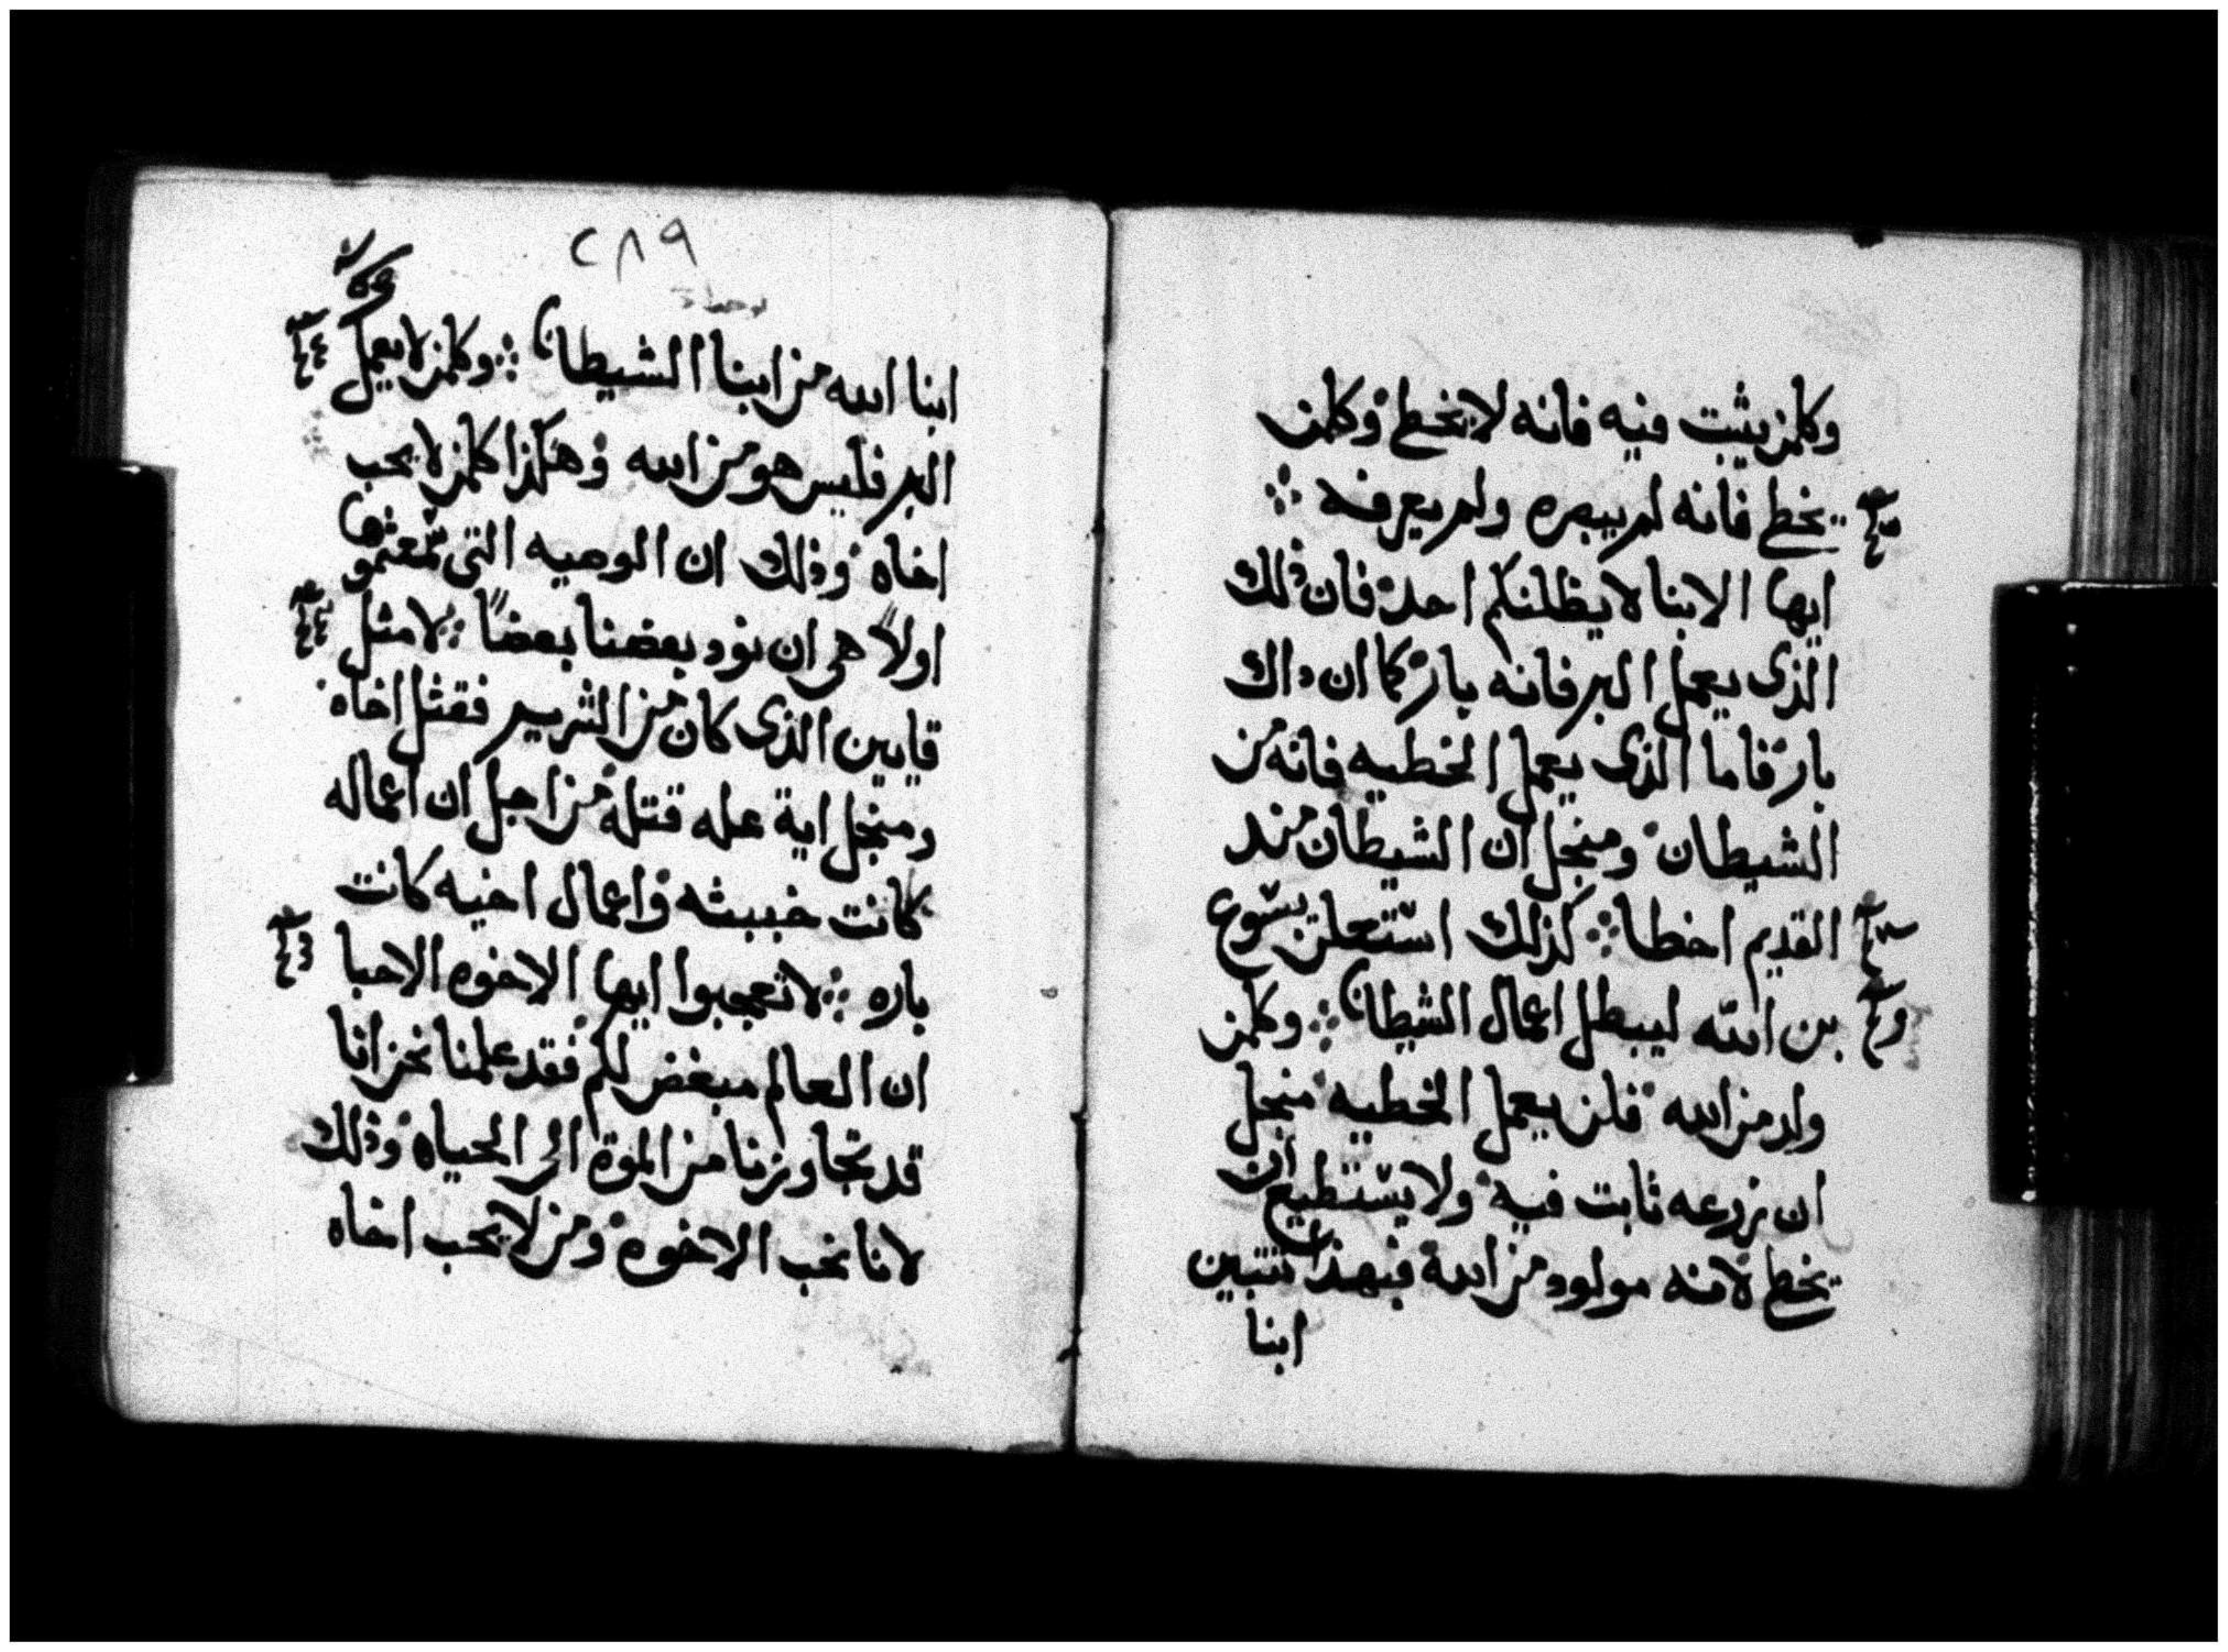 وكلمن يثبت فيه فانه لا يخطى وكلمن
يخطى فانه لم يبصره ولم يعرفه
ايها الابنا لا يظلنكم احد فان ذلك
الذى يعمل البر فانه بار كما ان داك
بار فاما الذى يعمل الخطيه فانه من
الشيطان ومنجل ان الشيطان مند
القديم اخطا كذلك استعلن يسوع
بن الله ليبطل اعمال الشيطان وكلمن
ولد من الله فلن يعمل الخطيه منجل
ان زرعه ثابت فيه ولا يستطيع ان
يخطى لانه مولود من الله فبهذا تتبين
ابنا
٢٨٩
ابنا الله من ابنا الشيطان وكلمن لا يعمل
البر فليس هو من الله وهكذا كلمن لا يحب
اخاه وذلك ان الوصيه التى سمعتموها
اولاً هى ان نود بعضنا بعضاً لا مثل
قايين الذى كان من الشرير فقتل اخاه
ومنجل اية عله قتله من اجل ان اعماله
كانت خبيثه واعمال اخيه كانت
باره لا تعجبوا ايها الاخوه الاحبا
ان العالم مبغض لكم فقد علمنا نحن انا
قد تجاوزنا من الموة الى الحياه وذلك
لانا نحب الاخوه ومن لا يحب اخاه